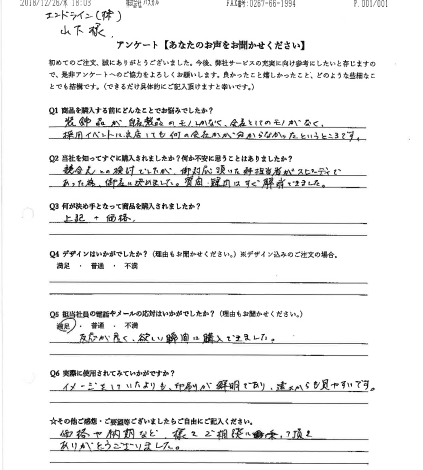 2018/12/26/水 16:03 FAX番号:0267-66-1994 P.001/001
エンドライン(株)
山下様
アンケート【あなたのお声をお聞かせください】
初めてのご注文、誠にありがとうございました。今後、弊社サービスの充実に向け参考にしたいと存じますので、
是非アンケートへのご協力をよろしくお願いします。良かったこと嬉しかったこと、どのような些細なこ
とでも結構です。(できるだけ具体的にご記入頂けますと幸いです。)
Q1 商品を購入する前にどんなことでお悩みでしたか?
装飾品が自社製品のモノしかなく、会社としてのモノがなく、
採用イベントに出店しても何の会社かが分からなかったというところです。
Q2 当社を知ってすぐに購入されましたか?何か不安に思うことはありましたか?
競合との検討でしたが、御対応頂いた御担当者がスピーディで
あった為、御社に決めました。質問・疑問はすぐ解消できました。
Q3 何が決め手となって商品を購入されましたか?
上記 + 価格。
Q4 デザインはいかがでしたか?(理由もお聞かせください。)※デザイン込みのご注文の場合。
満足 ・ 普通 ・ 不満
Q5 担当社員の電話やメールの応対はいかがでしたか?(理由もお聞かせください。)
満足 ・ 普通 ・ 不満
反応が良く、欲しい瞬間に購入できました。
Q6 実際に使用されてみていかがですか?
イメージしていたよりも、印刷が鮮明であり、遠くからも見やすいです。
☆その他ご感想・ご要望等ございましたらご自由にご記入ください。
価格や納期など、様々ご相談に乗って頂き
ありがとうございました。